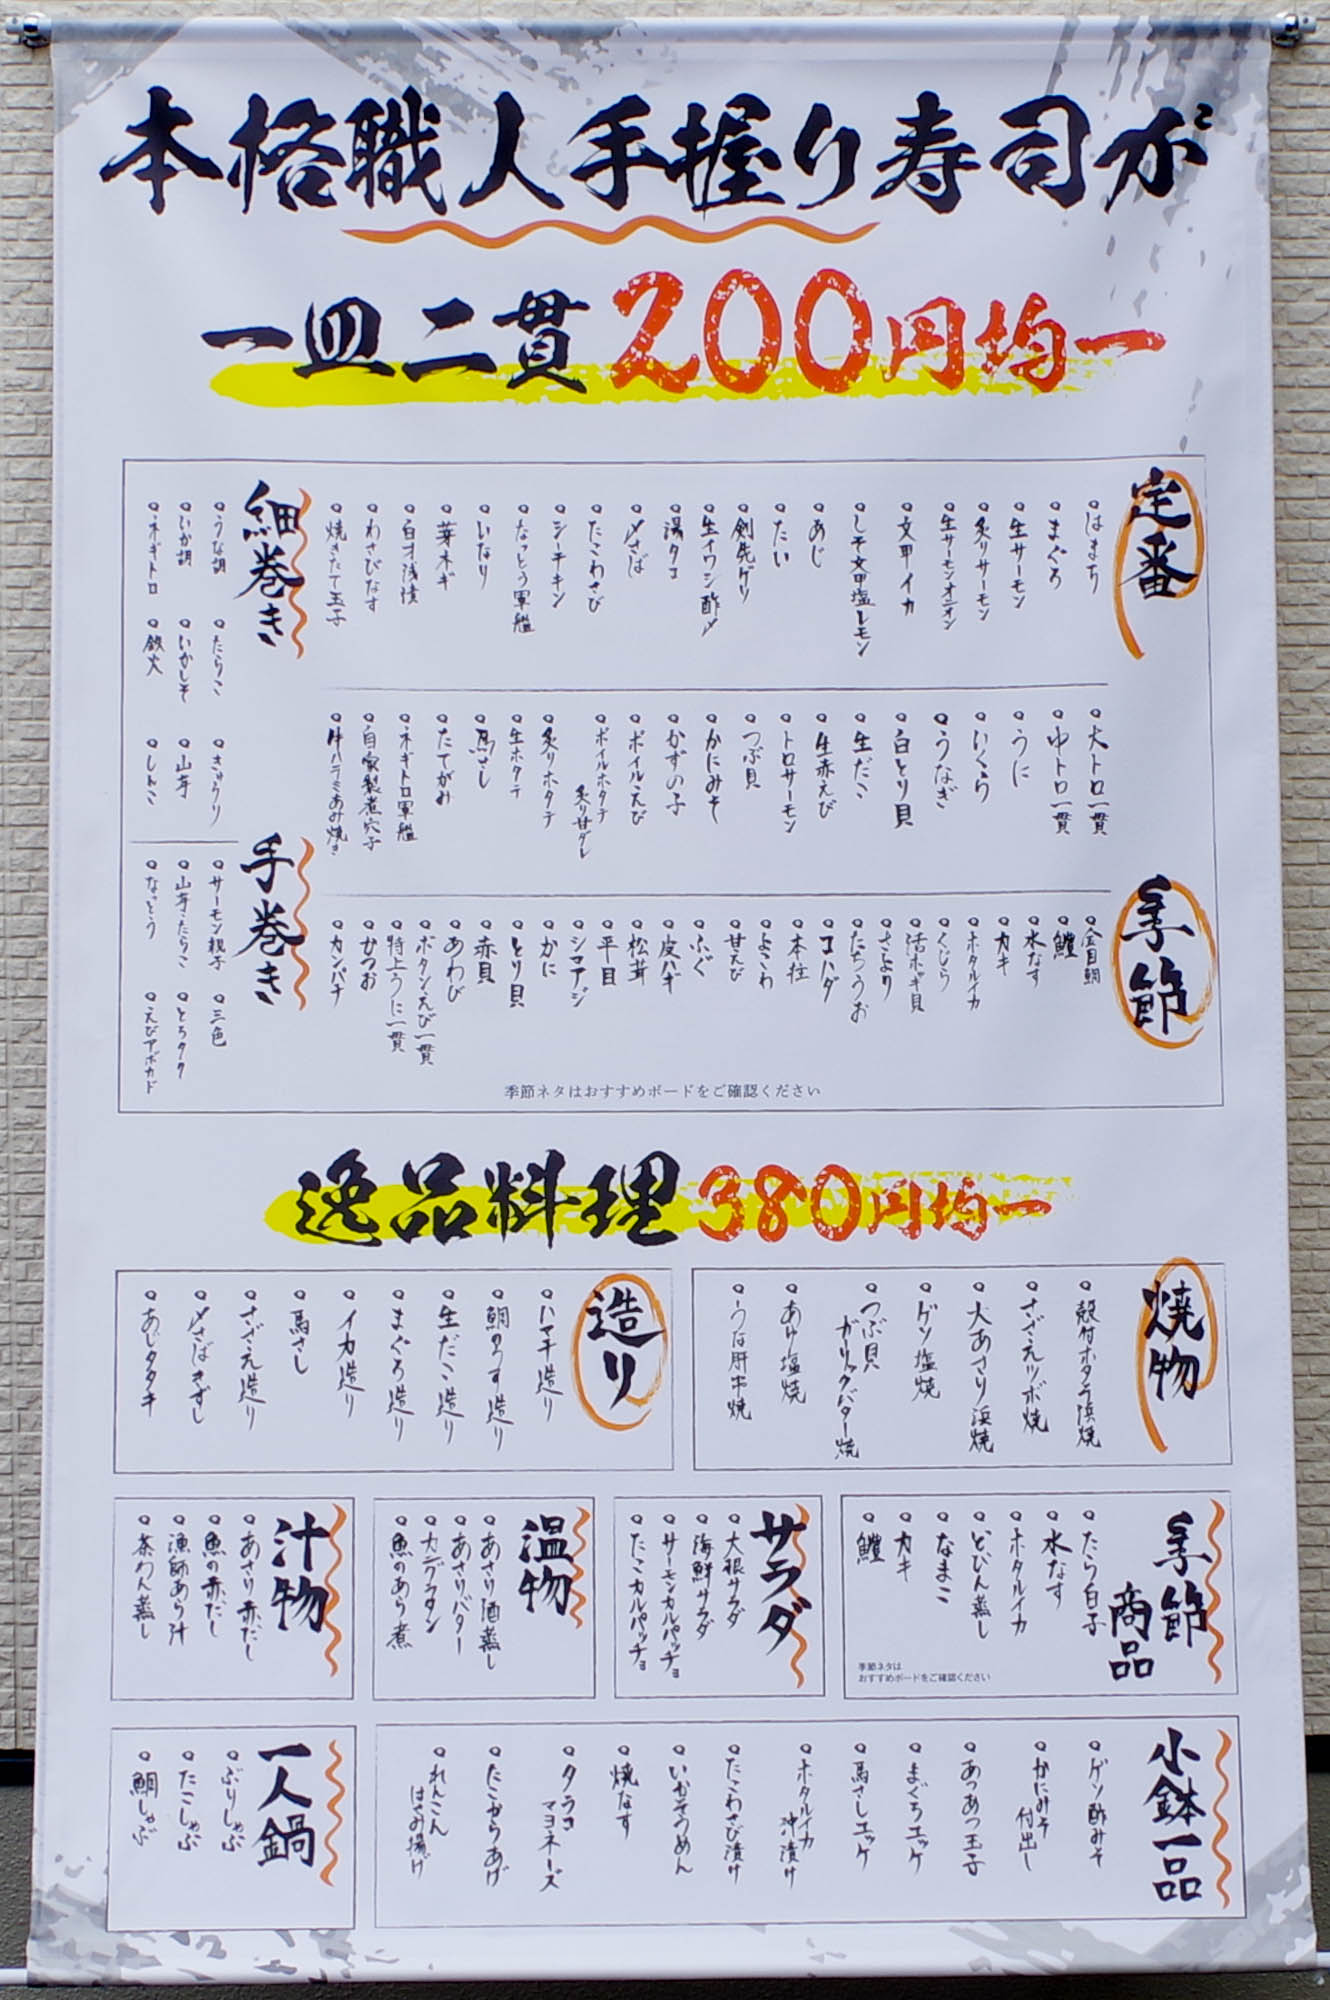 本格職人手握り寿司が
一皿二貫200円均一
定番
はまち
まぐろ
生サーモン
炙りサーモン
生サーモンオニオン
文甲イカ
しそ文甲塩レモン
あじ
たい
剣先ゲソ
生イワシ酢〆
湯タコ
〆さば
たこわさび
シーチキン
なっとう軍艦
いなり
芽ネギ
白才浅漬
わさびなす
焼きたて玉子
大トロ一貫
中トロ一貫
うに
いくら
うなぎ
白とり貝
生だこ
生赤えび
トロサーモン
つぶ貝
かにみそ
かずの子
ボイルえび
ボイルホタテ
炙り甘ダレ
炙りホタテ
生ホタテ
馬さし
たてがみ
ネギトロ軍艦
自家製煮穴子
牛ハラミあみ焼き
季節
金目鯛
鱧
カキ
水なす
ホタルイカ
くじら
活ホッキ貝
さより
たちうお
コハダ
本柱
よこわ
甘えび
ふぐ
皮ハギ
松茸
平目
シマアジ
かに
とり貝
赤貝
あわび
ボタンえび一貫
特上うに一貫
かつお
カンパチ
季節ネタはおすすめボードをご確認ください
細巻き
うな胡
いか胡
ネギトロ
たらこ
いかしそ
鉄火
きゅうり
山芋
しんこ
手巻き
サーモン親子
山芋たらこ
なっとう
三色
とろタク
えびアボカド
逸品料理380円均一
焼物
殻付ホタテ浜焼
さざえツボ焼
大あさり浜焼
ゲソ塩焼
つぶ貝
ガーリックバター焼
あゆ塩焼
うは肝串焼
造り
ハマチ造り
鯛のうす造り
生だこ造り
まぐろ造り
イカ造り
馬さし
さざえ造り
〆さばきずし
あじタタキ
季節商品
たら白子
水なす
ホタルイカ
どびん蒸し
なまこ
カキ
鱧
季節ネタは
おすすめボードをご確認ください
サラダ
大根サラダ
海鮮サラダ
サーモンカルパッチョ
たこカルパッチョ
温物
あさり酒蒸し
あさりバター
カニグラタン
魚のあら煮
汁物
あさり赤だし
魚の赤だし
漁師あら汁
茶わん蒸し
小鉢一品
ゲソ酢みそ
かにみそ
付出し
あつあつ玉子
まぐろユッケ
馬さしユッケ
ホタルイカ
沖漬け
たこわさび漬け
いかそうめん
焼なす
タラコ
マヨネーズ
たこからあげ
れんこん
はさみ揚げ
一人鍋
ぶりしゃぶ
たこしゃぶ
鯛しゃぶ